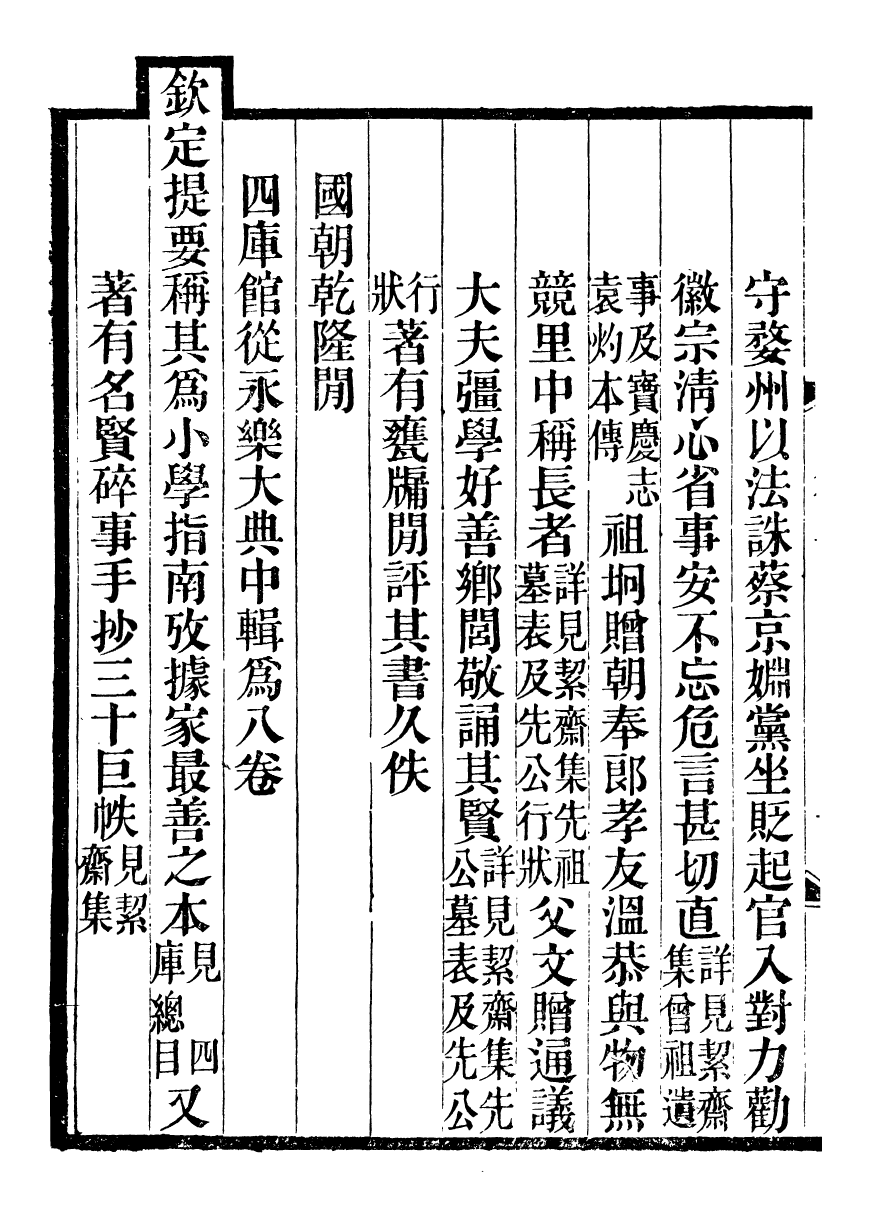 守婺州以法誅蔡京婣黨坐貶起官入對力勸
徽宗淸心省事安不忘危言甚切直詳見絜齋集曾祖遺
事及寶慶志袁灼本傳祖坰贈朝奉郞孝友溫恭與物無
競里中稱長者詳見絜齋集先祖墓表及先公行狀父文贈通議
大夫彊學好善鄕閭敬誦其賢詳見絜齋集先公墓表及先公
行狀著有甕牖閒評其書久佚
國朝乾隆閒
四庫館從永樂大典中輯爲八卷
欽定提要稱其爲小學指南攷據家最善之本見四庫總目又
著有名賢碎事手抄三十巨帙見絜齋集